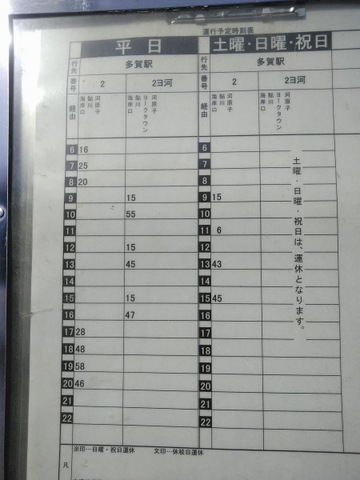 運行予定時刻表
平日 土曜・日曜・祝日
行先 多賀駅 行先 多賀駅
番号 2 2ヨ河 番号 2 2ヨ河
経由 河原子 鮎川 海岸口 河原子 ヨークタウン 海岸口 経由 河原子 鮎川 海岸口 河原子 ヨークタウン 海岸口
6 16 6
7 25 7
8 20 8
9 15 9 15
10 55 10
11 11 6
12 15 12
13 45 13 43
14 14
15 15 15 45
16 47 16
17 28 17
18 48 18
19 58 19
20 46 20
21 21
22 22
土曜・日曜・祝日は、運休となります。
※印…日曜・祝日運休 文印…休校日運休
凡